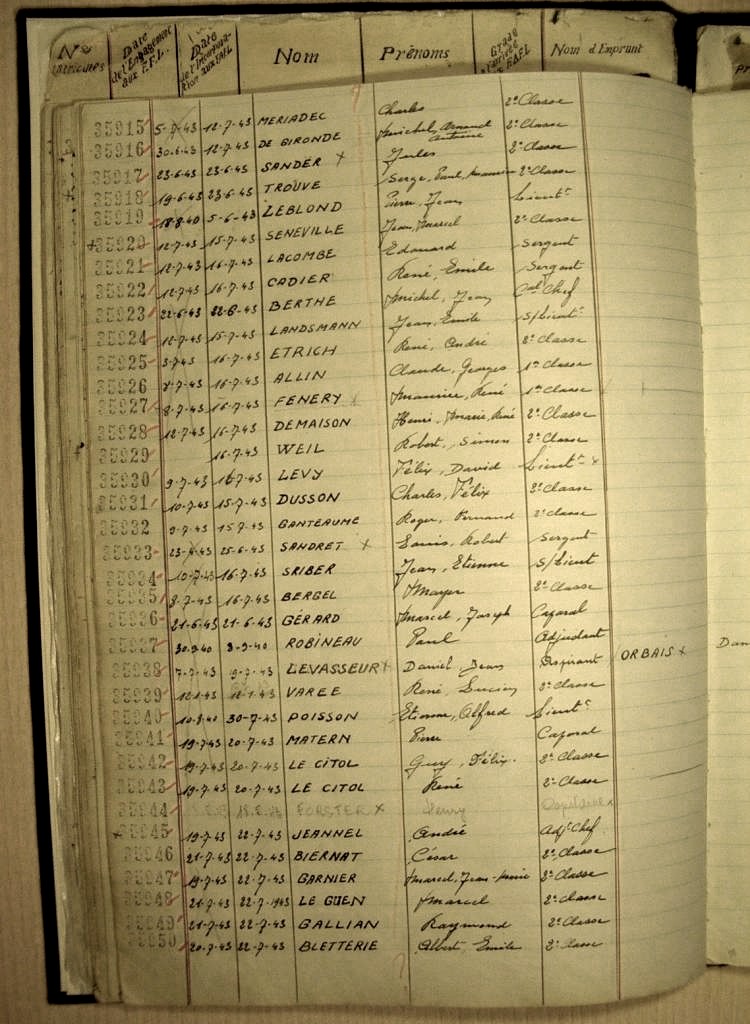 Nos Matricules Date de l'Engagement aux F.F.L. Date de l'Incorporation aux FAFL Nom Prénoms Grade FAFL Nom d'Emprunt
35915 5-7-43 12-7-43 MERIADEC Charles 2e Classe
35916 30-6-43 12-7-43 DE GIRONDE Michel, Arnaud Antoine 2e Classe
35917 23-6-43 23-6-43 SANDER x Jules 2e Classe
35918 19-6-43 23-6-43 TROUVE Serge, Paul, Maurice 2e Classe
35919 18-8-40 5-6-43 LEBLOND Pierre, Jean Lieutt
+35920 12-7-43 15-7-43 SENEVILLE Jean, Marcel 2e Classe
35921 12-7-43 16-7-43 LACOMBE Edouard Sergent
35922 12-7-43 16-7-43 CADIER René, Emile Sergent
35923 22-6-43 22-6-43 BERTHE Michel, Jean Cal Chef
35924 12-7-43 15-7-43 LANDSMANN Jean, Emile S/Lieutt
35925 3-7-43 16-7-43 ETRICH René, André 2e Classe
35926 16-7-43 ALLIN Claude, Georges 1e Classe
35927 8-7-43 16-7-43 FENERY x Maurice, René 1e Classe
35928 12-7-43 16-7-43 DEMAISON Henri, Marie, René 2e Classe
35929 16-7-43 WEIL Robert, Simon 2e Classe
35930 9-7-43 16-7-43 LEVY Félix, David Lieutt x
35931 10-7-43 15-7-43 DUSSON Charles, Félix 2e Classe
35932 9-7-43 15-7-43 GANTEAUME Roger, Fernand 2e Classe
35933 25-6-43 SANDRET x Louis, Robert Sergent
35934 10-7-43 16-7-43 SRIBER Jean, Etienne S/Lieut
35935 8-7-43 16-7-43 BERGEL Mayer 2e Classe
35936 21-6-43 21-6-43 GÉRARD Marcel, Joseph Caporal
35937 30-9-40 ROBINEAU Paul Adjudant
35938 7-7-43 9-7-43 LEVASSEUR x Daniel, Jean Aspirant ORBAIS x Dan
35939 VAREE René, Lucien 2e Classe
35940 10-8-40 30-7-43 POISSON Etienne, Alfred Lieutt
35941 19-7-43 20-7-43 MATERN Pierre Caporal
35942 19-7-43 20-7-43 LE CITOL Guy, Félix 2e Classe
35943 19-7-43 20-7-43 LE CITOL René 2e Classe
35944 FORSTER x Henry Capitaine x
+35945 19-7-43 22-7-43 JEANNEL André Adjt Chef
35946 21-7-43 22-7-43 BIERNAT César 2e Classe
35947 19-7-43 22-7-43 GARNIER Marcel, Jean-Marie 2e Classe
35948 21-7-43 22-7-1943 LE GUEN Marcel 2e Classe
35949 21-7-43 22-7-43 GALLIAN Raymond 2e Classe
35950 20-7-43 22-7-43 BLETTERIE Albert, Emile 2e Classe